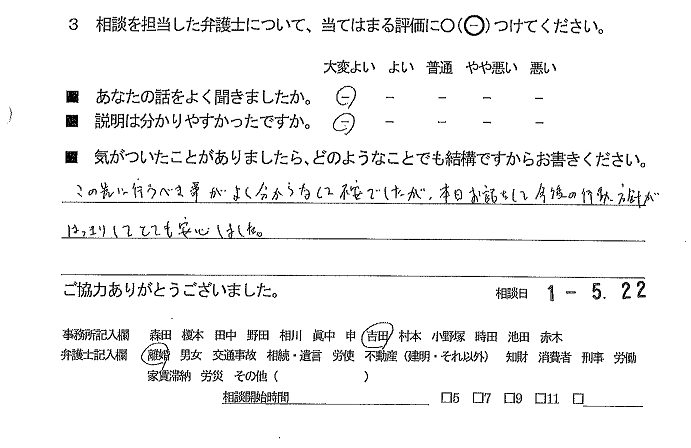 3 相談を担当した弁護士について、当てはまる評価に○(⊖)つけてください。
大変よい よい 普通 やや悪い 悪い
■ あなたの話をよく聞きましたか。 − − − − −
■ 説明は分かりやすかったですか。 − − − − −
■ 気がついたことがありましたら、どのようなことでも結構ですからお書きください。
この先に行うべき事がよく分からなくて不安でしたが、本日お話をして今後の行動方針が
はっきりしてとても安心しました。
ご協力ありがとうございました。 相談日 1-5.22
事務所記入欄 森田 榎本 田中 野田 相川 眞中 申 吉田 村本 小野塚 時田 池田 赤木
弁護士記入欄 離婚 男女 交通事故 相続・遺言 労使 不動産(建明・それ以外) 知財 消費者 刑事 労働
家賃滞納 労災 その他( )
相談開始時間 □5 □7 □9 □11 □